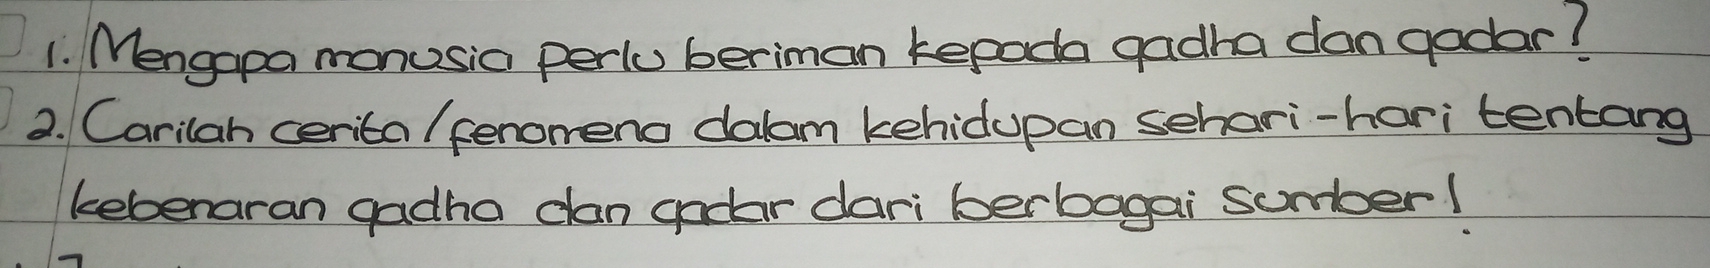 1. Mengapa manusia perlu beriman kepada qadha dan qadar?
2. Carilah cerita/fenomena dalam kehidupan sehari-hari tentang
kebenaran qadha dan qadar dari berbagai sumber!